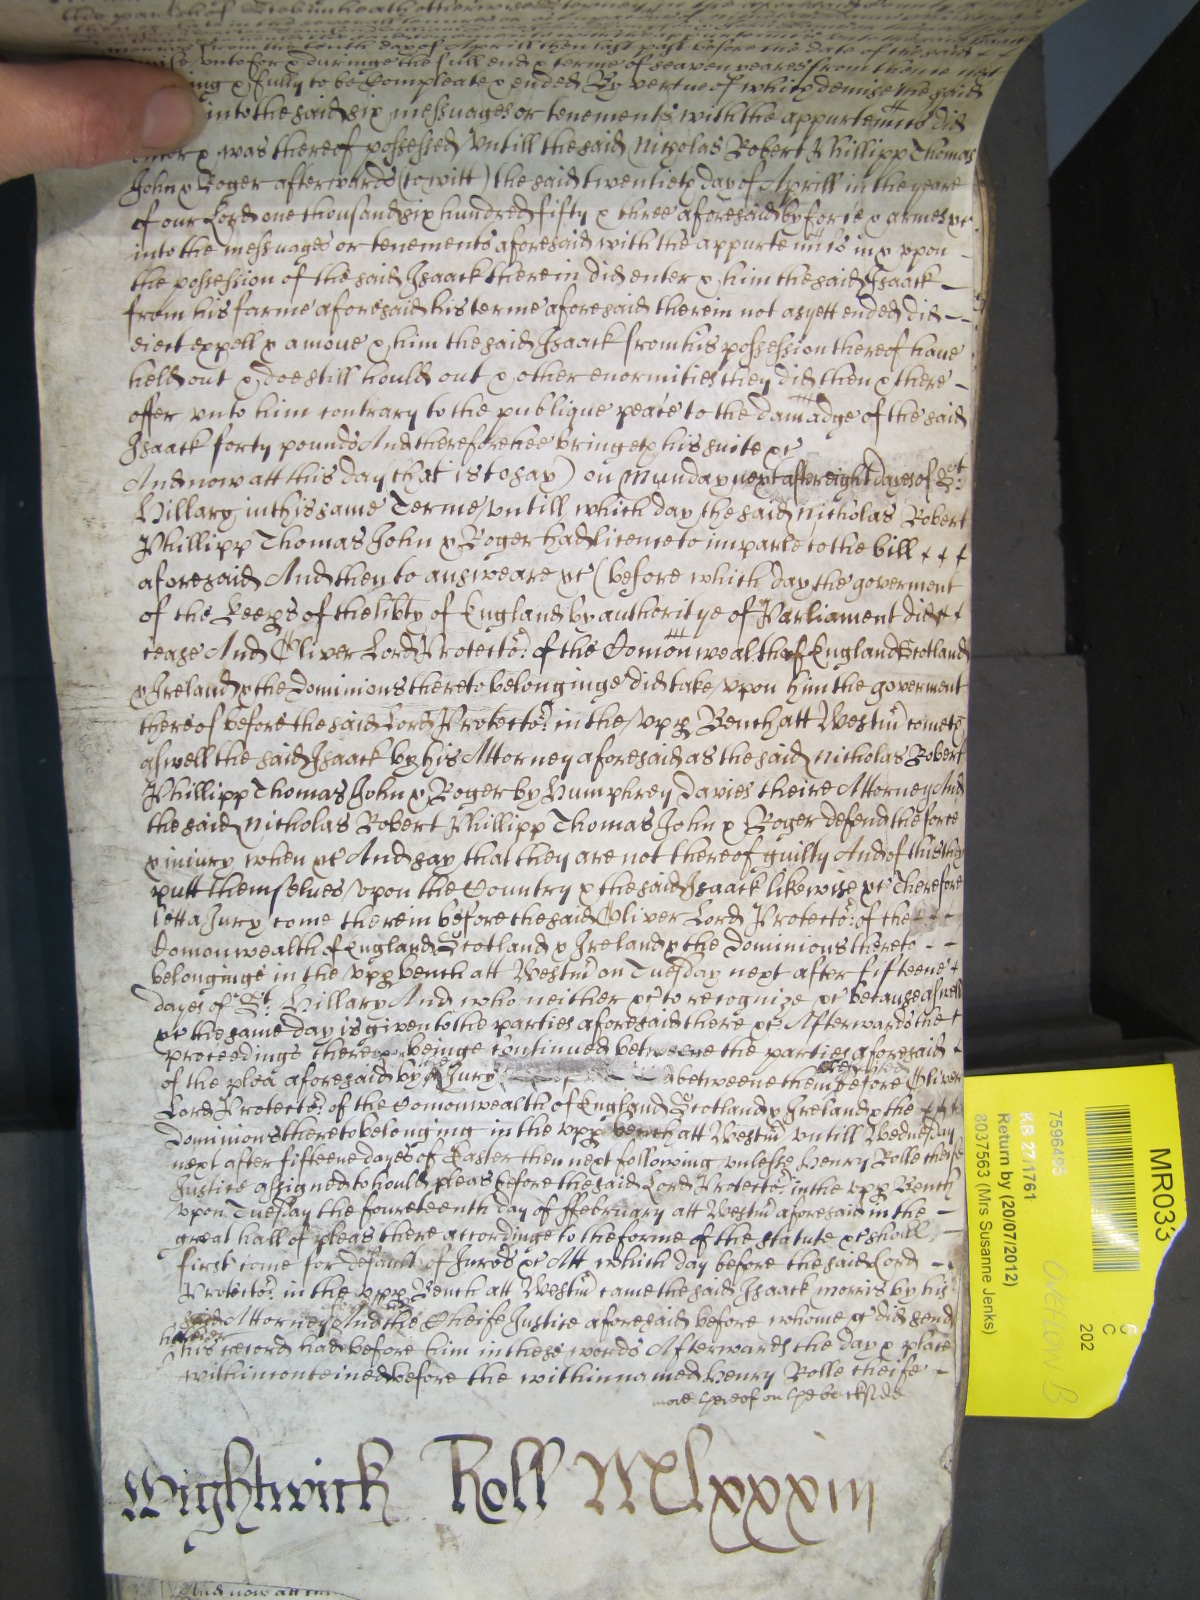 the parish of Stebunheath otherwise Stepney in the aforesaid County
morris from the tenth day of Aprill then last past before the date of the said
unto for & duringe the full end & terme of seaven yeares from thence next
ing & fully to be Compleate & ended By vertue of which demise the said
into the said six messuages or tenements with the appurtenncs did
enter & was thereof possessed Untill the said Nicholas Robert Phillipp Thomas
John & Roger afterwards (to witt) the said twentieth day of Aprill in the yeare
of our Lord one thousand six hundred fifty & three aforesaid by force & armes &c
into the messuages or tenements aforesaid with the appurtenncs in & upon
the possession of the said Isaack therein did enter & him the said Isaack
from his farme aforesaid his terme aforesaid therein not as yett ended did
eiect expell & amove & him the said Isaack from his possession thereof have
held out & doe still hould out & other enormities they did then & there
offer unto him contrary to the publique peace to the damadge of the said
Isaack forty pounds And therefore hee bringeth his suite &c
And now att this day (that is to say) on Munday next after eight dayes of St
Hillary in this same Terme untill which day the said Nicholas Robert
Phillipp Thomas John & Roger had licence to imparle to the bill
aforesaid And then to answeare &c (before which day the goverment
of the Keeps of the libty of England by authoritye of Parliament did
cease And Oliver Lord Protector of the Comonwealth of England Scotland
& Ireland & the Dominions thereto belonginge did take upon him the goverment
thereof before the said Lord Protector in the upp Bench att Westm cometh
aswell the said Isaack by his Attorney aforesaid as the said Nicholas Robert
Phillipp Thomas John & Roger by Humphrey Davies theire Attorney And
the said Nicholas Robert Phillipp Thomas John & Roger defend the force
& iniury when &c And say that they are not thereof guilty And of this they
putt themselves upon the Country & the said Isaack likewise &c Therefore
lett a Jury come therein before the said Oliver Lord Protector of the
Comonwealth of England Scotland & Ireland & the Dominions thereto
belonginge in the upp bench att Westm on Tuesday next after fifteene
dayes of St Hillary And who neither &c to recognize &c because aswell
&c the same day is given to the parties aforesaid there &c Afterwards the
proceedings thereof beinge continued betweene the parties aforesaid
of the plea aforesaid by the Jury betweene them before Oliver
Lord Protector of the Comonwealth of England Scotland & Ireland & the
Dominions thereto belonging in the upp bench att Westm untill Wednesday
next after fifteene dayes of Easter then next following unlesse Henry Rolle cheife
Justice assigned to hould pleas before the said Lord Protector in the upp Bench
upon Tuesday the fourteenth day of ffebruary att Westm aforesaid in the
great hall of pleas there accordinge to the forme of the statute &c should
first come for default of Jurors &c Att which day before the said Lord
Protector in the upp Bench att Westm came the said Isaack morris by his
said Attorney And the Cheife Justice aforesaid before whome &c did send
his record had before him in these words Afterwards the day & place
within conteined before the within named Henry Rolle cheife
more hereof on the backside
Wightwick Roll MClxxxiii
And now att
MR033
7596495
KB 27/1761
Return by (20/07/2012)
8037563 (Mrs Susanne Jenks)
C
202
OVERLOW B